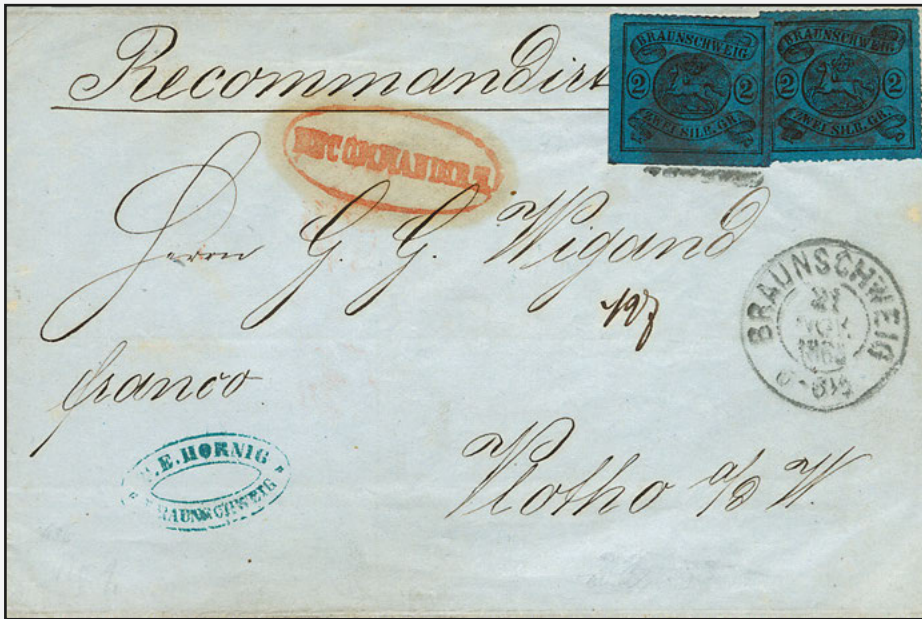 Recommandirt
BRAUNSCHWEIG
2 2
ZWEI SILB. GR.
BRAUNSCHWEIG
2 2
ZWEI SILB. GR.
RECOMMANDIRT.
Herrn G. G. Wigand
127
BRAUNSCHWEIG
21
NOV
6-6½
franco
Vlotho a/d W.
E. HORNIG
BRAUNSCHWEIG